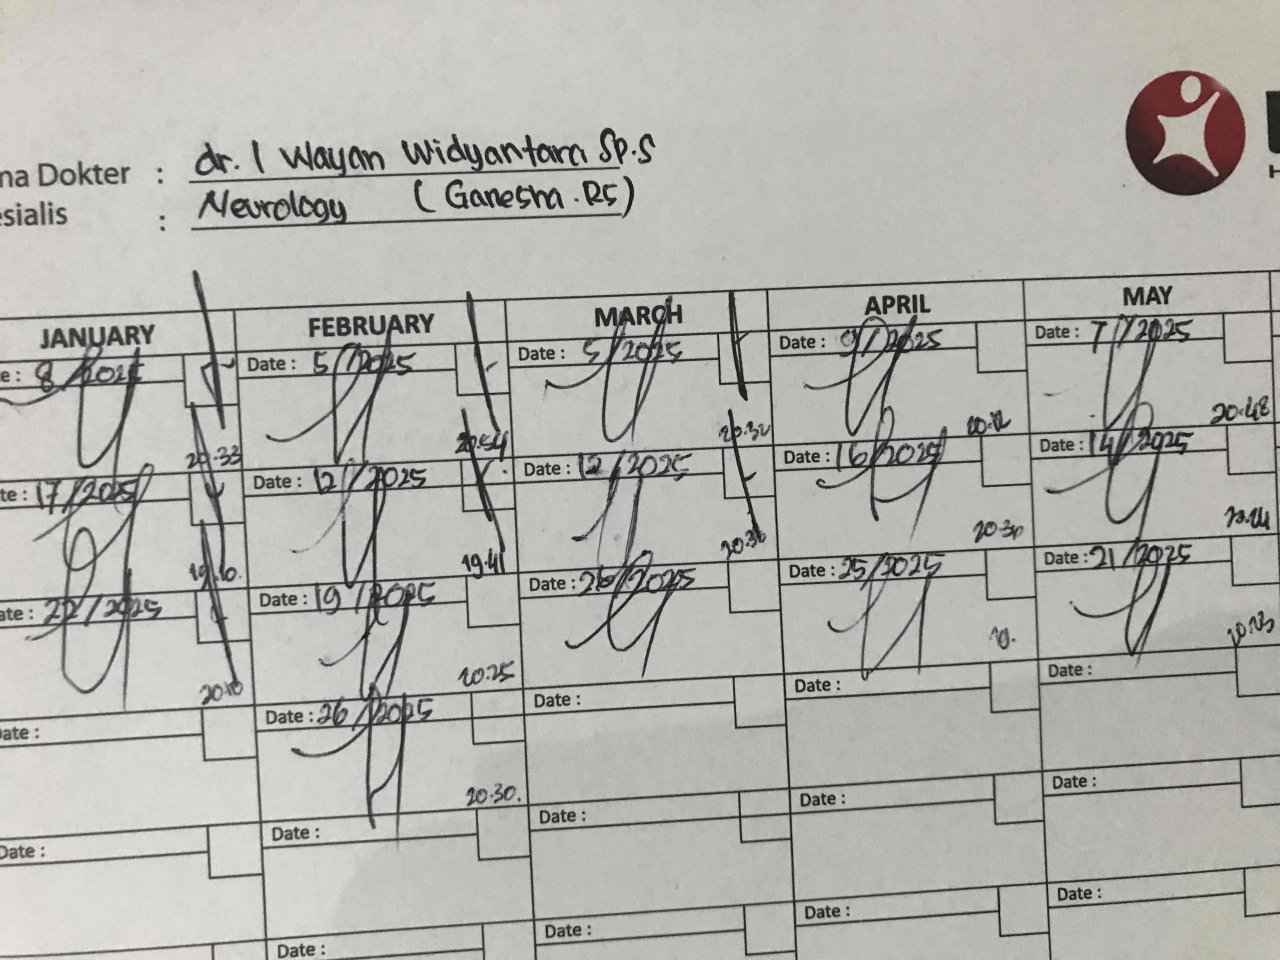 na Dokter : dr. I Wayan Widyantara Sp.S
esialis : Neurology (Ganesha.RS)
H
JANUARY FEBRUARY MARCH APRIL MAY
e: 8/2025 Date: 5/2025 Date: 5/2025 Date: 9/2025 Date: 7/2025
20.33 20.54 20.32 20.12 20.48
te: 17/2025 Date: 12/2025 Date: 12/2025 Date: 16/2025 Date: 14/2025
19.41 20.30
ate: 22/2025 Date: 19/2025 Date: 26/2025 Date: 25/2025 Date: 21/2025
20.10 20.25 20.
ate: Date: 26/2025 Date: Date: Date:
20.30.
Date: Date: Date: Date: Date:
Date: Date: Date: Date: